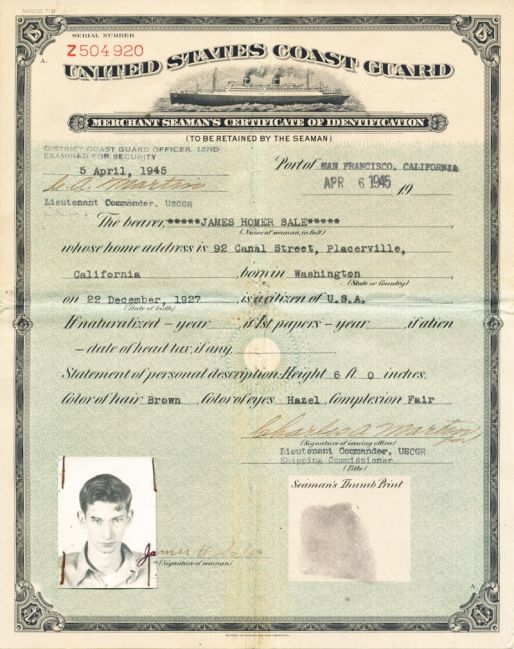 NAVCG 718
SERIAL NUMBER
Z504920
A.
UNITED STATES COAST GUARD
MERCHANT SEAMAN'S CERTIFICATE OF IDENTIFICATION
(TO BE RETAINED BY THE SEAMAN)
DISTRICT COAST GUARD OFFICER, 12ND
EXAMINED FOR SECURITY
5 April, 1945
Port of SAN FRANCISCO, CALIFORNIA
APR 6 1945 19
Martin
Lieutenant Commander, USCGR
The bearer, *****JAMES HOMER SALE*****
(Name of seaman, in full)
whose home address is 92 Canal Street, Placerville,
California, born in Washington,
(State or Country)
on 22 December, 1927, is a citizen of U.S.A.
(Date of birth)
If naturalized – year, if 1st papers – year, if alien
– date of head tax, if any.
Statement of personal description: Height 6 ft. 0 inches,
Color of hair Brown, Color of eyes Hazel, Complexion Fair
Charles A Martin
(Signature of issuing officer)
Lieutenant Commander, USCGR
Shipping Commissioner
(Title)
Seaman's Thumb Print
James H. Sale
(Signature of seaman)
A